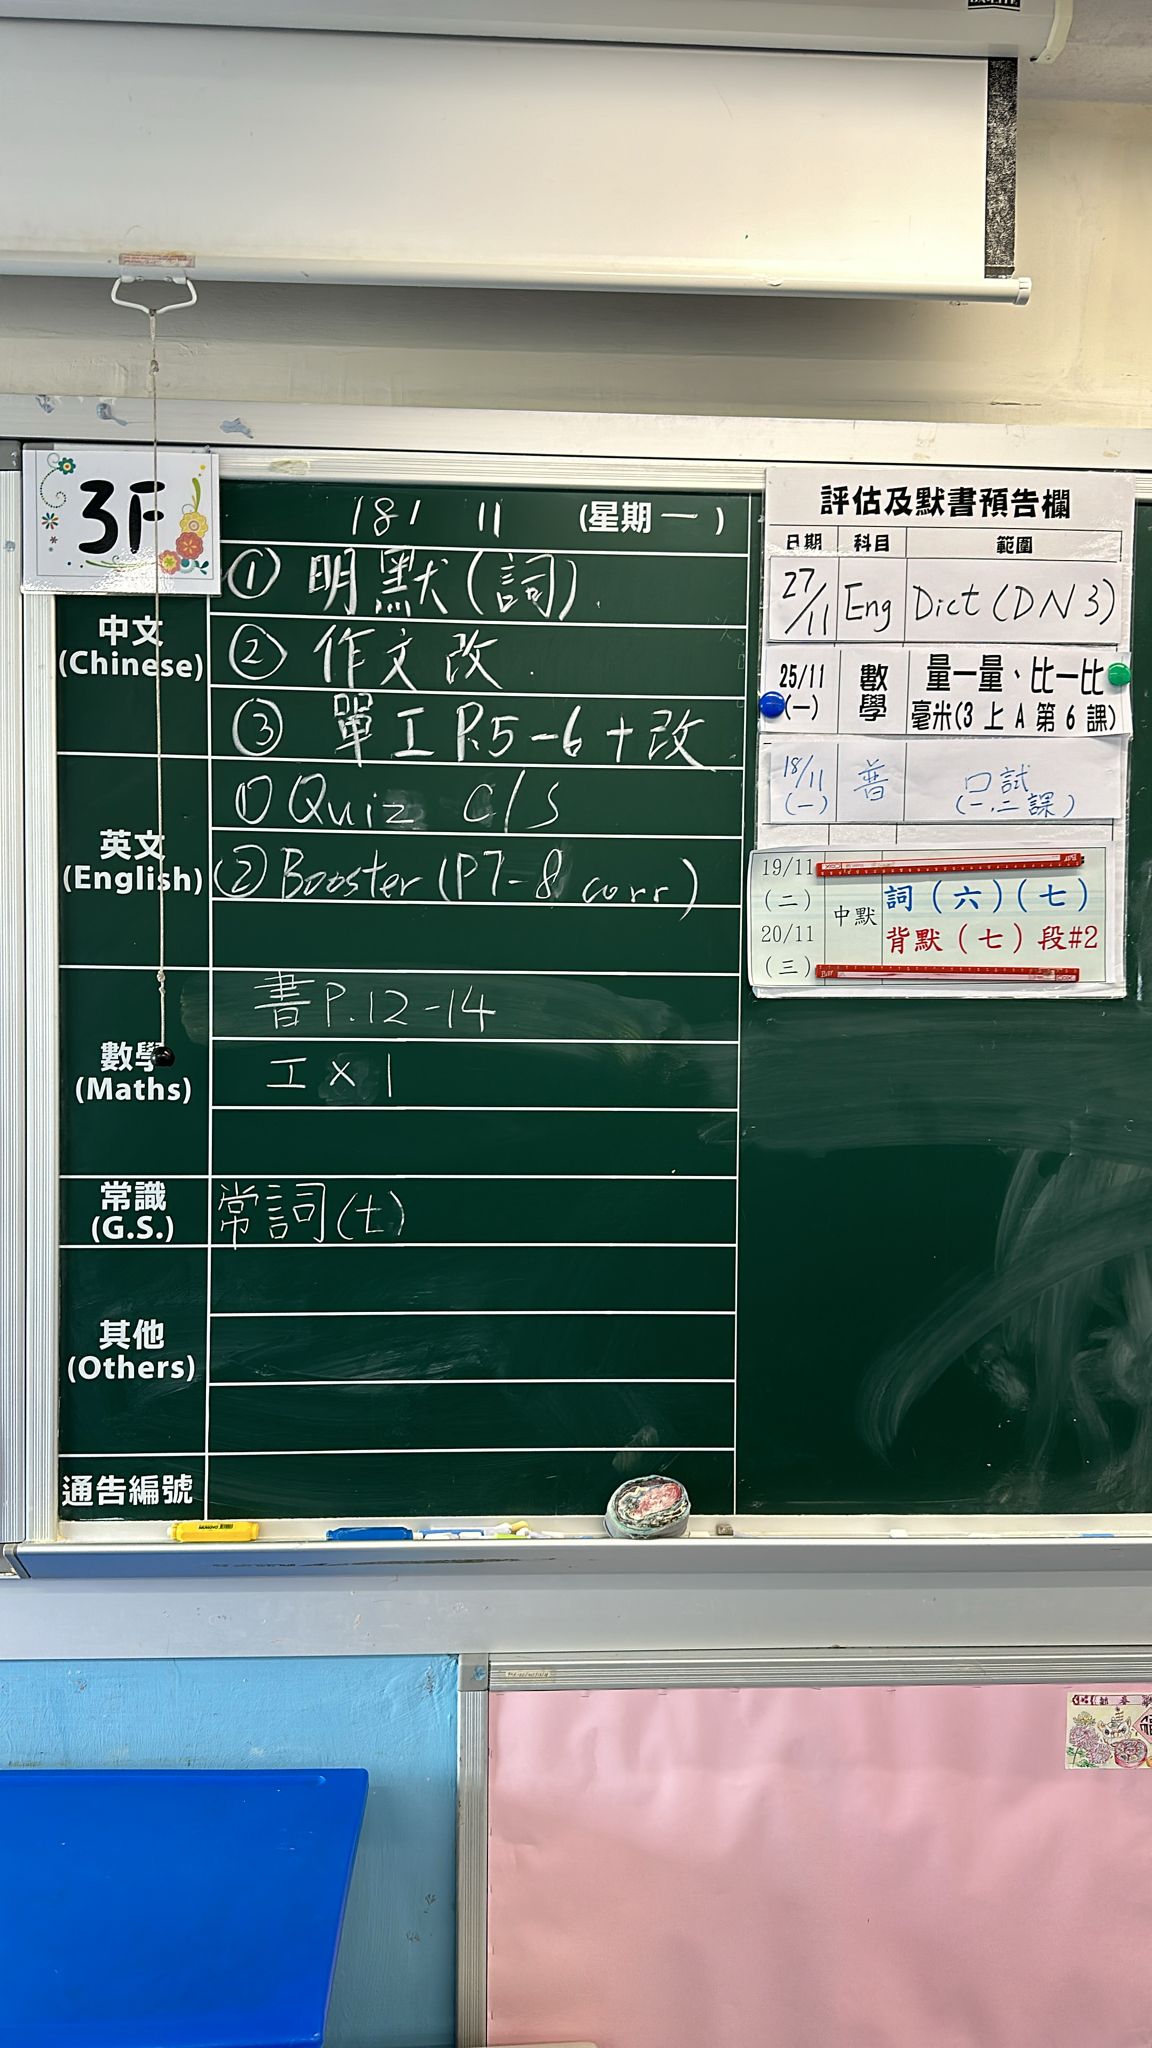 3F
18/ 11 (星期一)
中文
(Chinese)
① 明默(詞).
② 作文改.
③ 單工P.5-6+改
英文
(English)
① Quiz C/S
(② Booster (P7-8 corr)
數學
(Maths)
書P.12-14
工×1
常識
(G.S.)
常詞(七)
其他
(Others)
通告編號
評估及默書預告欄
日期 科目 範圍
27/11 Eng Dict (DN3)
25/11 (一) 數學 量一量、比一比
毫米(3上A第6課)
18/11 (一) 普 口試
(一.二課)
19/11 (二) 中默 詞(六)(七)
20/11 (三) 背默(七)段#2